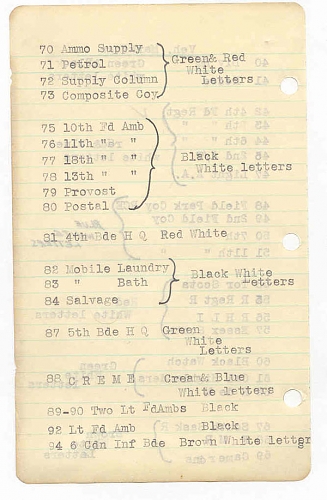 70 Ammo Supply
71 Petrol Green& Red
72 Supply Column White
73 Composite Coy Letters
75 10th Fd Amb
76 11th " "
77 18th " " Black
78 13th " " White letters
79 Provost
80 Postal
81 4th Bde H Q Red White
82 Mobile Laundry Black White
83 " Bath Letters
84 Salvage
87 5th Bde H Q Green
White
Letters
88 C R E M E Cream & Blue
White letters
89-90 Two Lt FdAmbs Black
92 Lt Fd Amb Black
94 6 Cdn Inf Bde Brown White letters